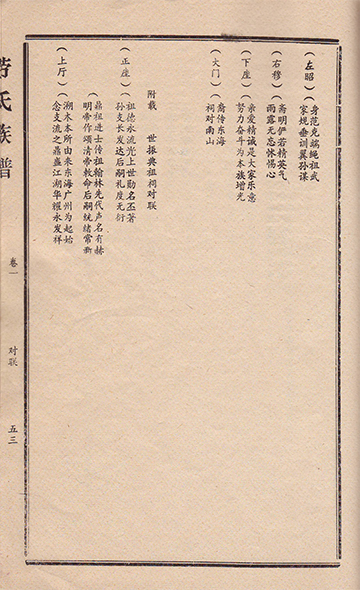 （左昭）
身范克端绳祖武
家规垂训翼孙谋
（右穆）
斋明伊若精英气
雨露无忘怵惕心
（下座）
亲爱精诚是大家乐意
努力奋斗为本族增光
（大门）
裔传东海
祠对南山
附载　世振典祖祠对联
（正座）
祖德永流光上世勋名丕著
孙支长发达后嗣礼度无衍
鼎祖进士传祖翰林先代声名有赫
明帝作颂清帝敕命后嗣统绪常新
（上厅）
溯木本所由来东海广州为起始
念支流之鼎盛江湖华耀永发祥
氏族谱
卷一
对联
五三